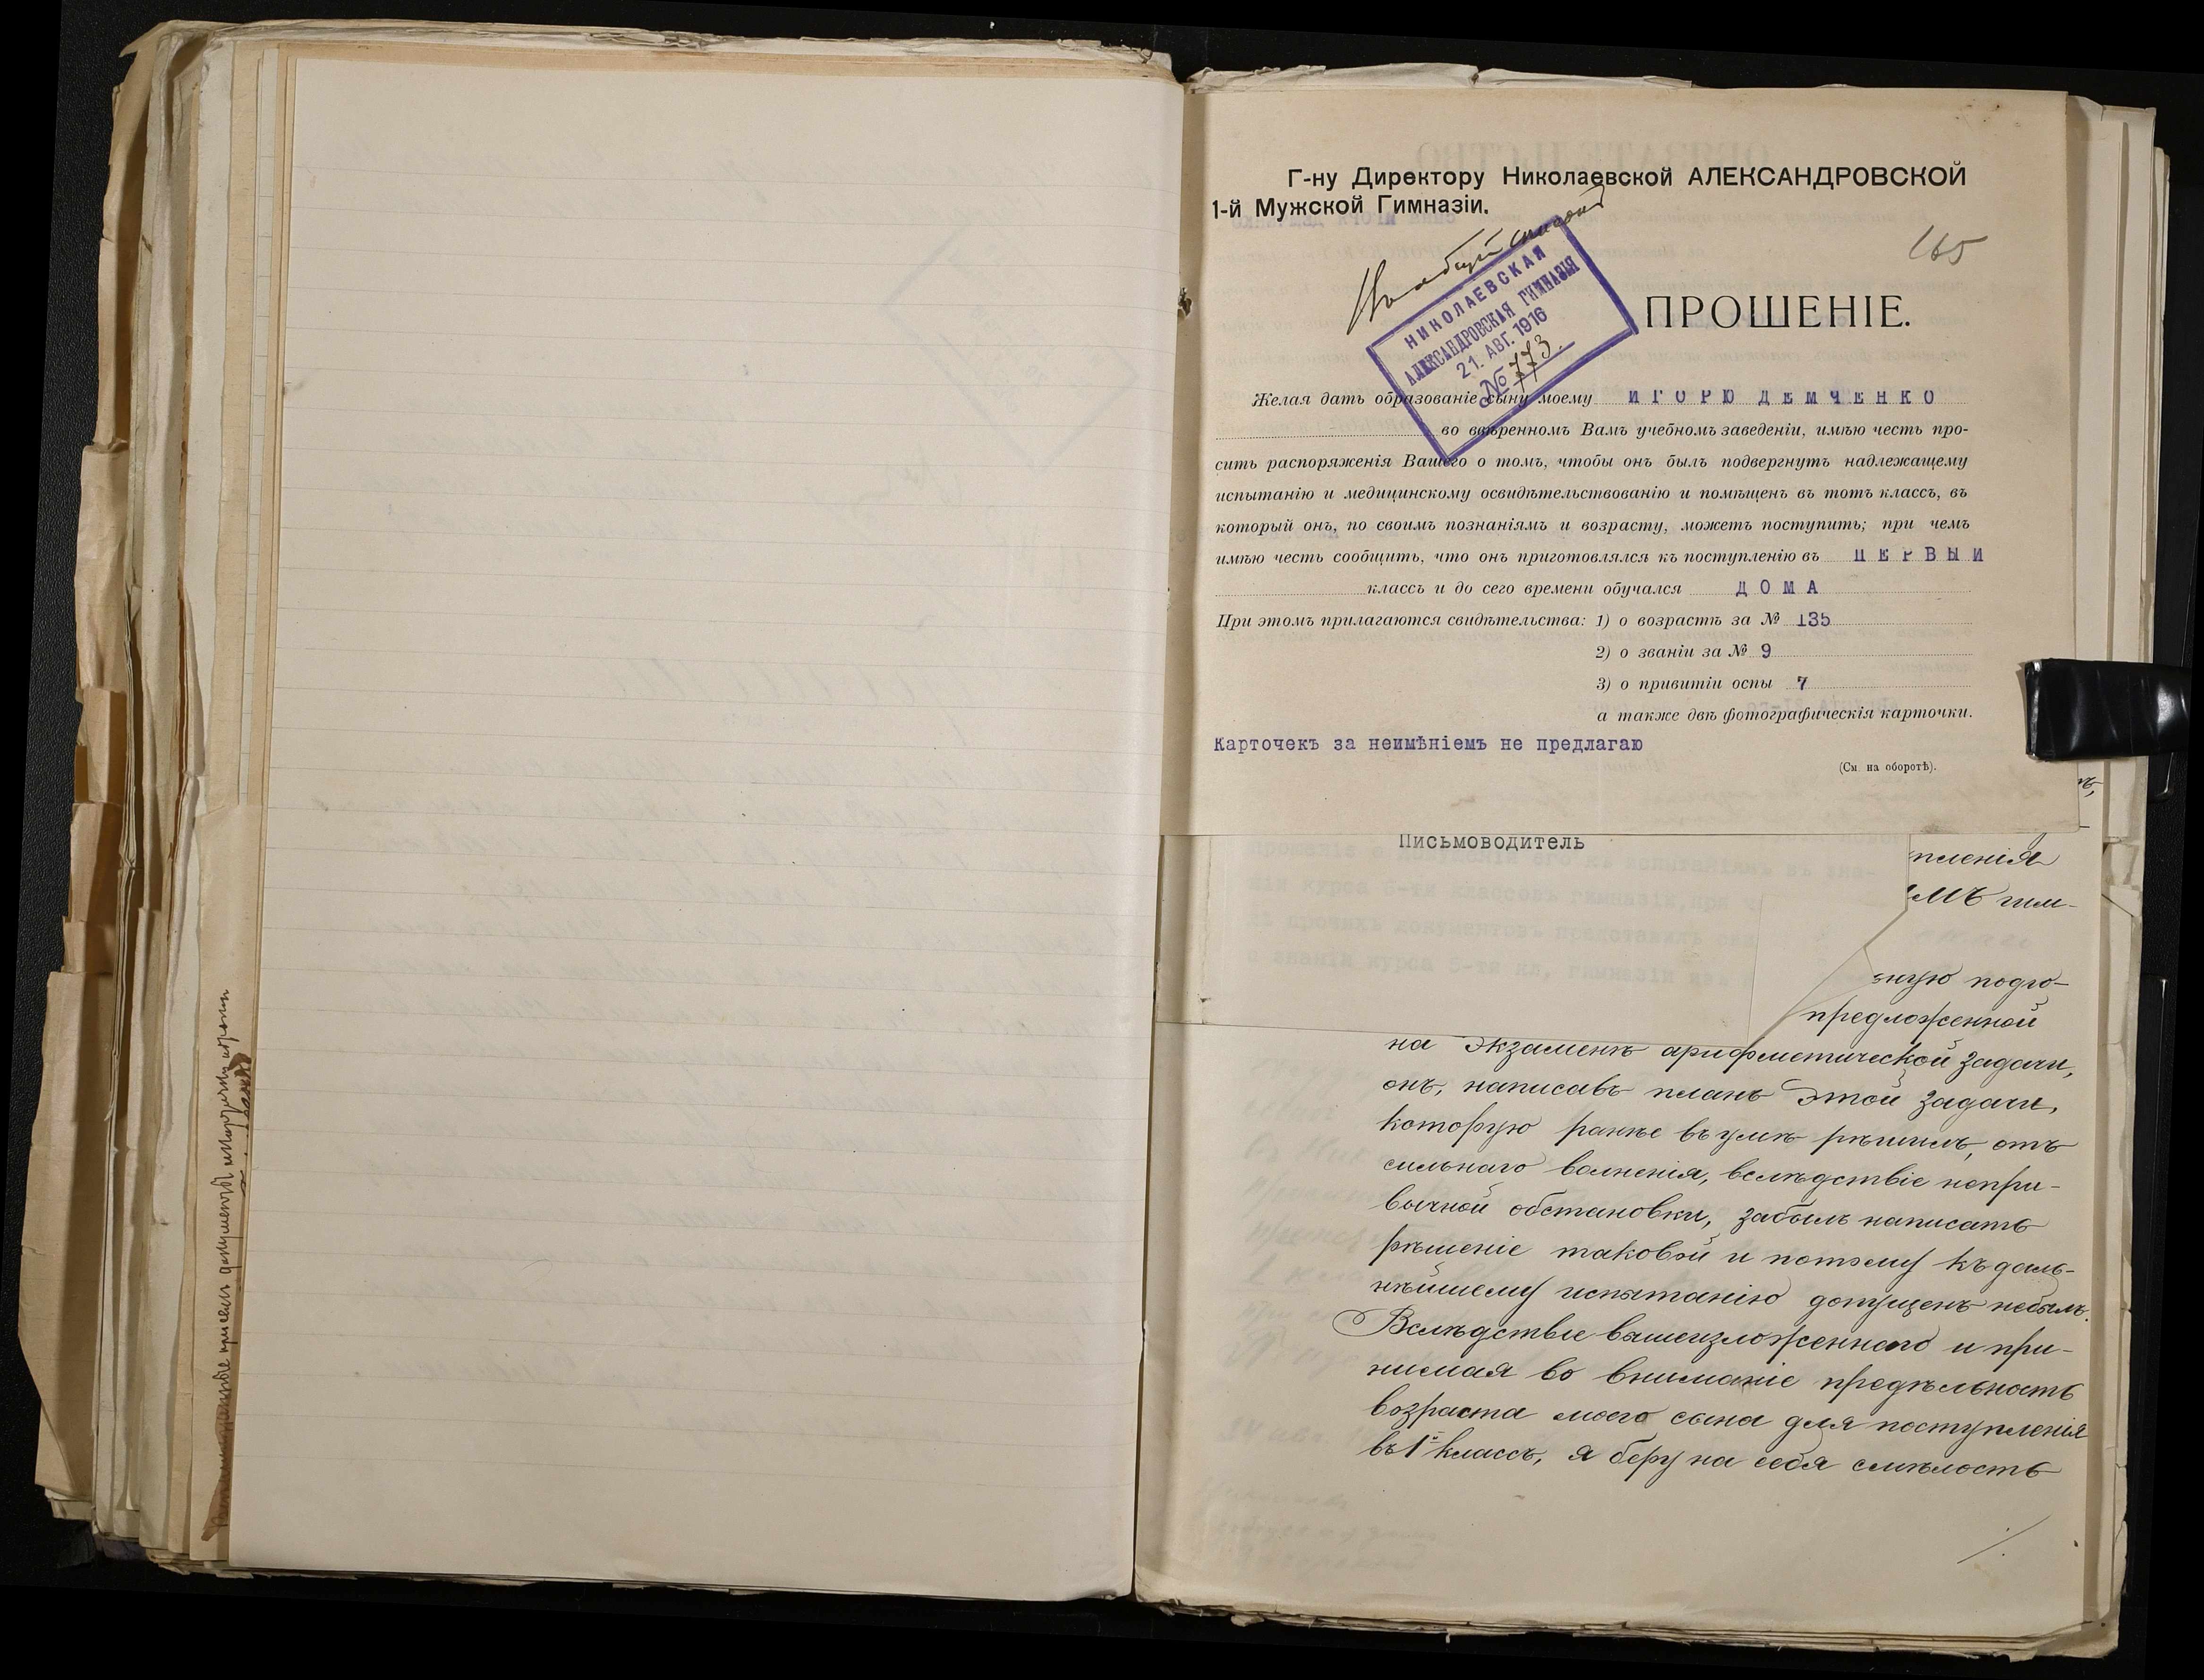 Г-ну Директору Николаевской АЛЕКСАНДРОВСКОЙ
1-й Мужской Гимназіи.
165
НИКОЛАЕВСКАЯ
АЛЕКСАНДРОВСКАЯ ГИМНАЗІЯ
21. АВГ. 1916
№ 773.
ПРОШЕНІЕ.
Желая дать образованіе сыну моему ИГОРЮ ДЕМЧЕНКО
во ввѣренномъ Вамъ учебномъ заведеніи, имѣю честь про-
сить распоряженія Вашего о томъ, чтобы онъ былъ подвергнутъ надлежащему
испытанію и медицинскому освидѣтельствованію и помѣщенъ въ тотъ классъ, въ
который онъ, по своимъ познаніямъ и возрасту, можетъ поступить; при чемъ
имѣю честь сообщить, что онъ приготовлялся къ поступленію въ ПЕРВЫЙ
классъ и до сего времени обучался ДОМА
При этомъ прилагаются свидѣтельства: 1) о возрастѣ за № 135
2) о званіи за № 9
3) о привитіи оспы 7
а также двѣ фотографическія карточки.
Карточекъ за неимѣніемъ не предлагаю
(См. на оборотѣ).
Письмоводитель
пленія
мъ гим-
ную подго-
предложенной
на экзаменѣ арифметической задачи,
онъ, написавъ планъ этой задачи,
которую ранѣе въ умѣ рѣшилъ, отъ
сильнаго волненія, вслѣдствіе непри-
вычной обстановки, забылъ написать
рѣшеніе таковой и потому къ даль-
нѣйшему испытанію допущенъ небылъ.
Вслѣдствіе вышеизложеннаго и при-
нимая во вниманіе предѣльность
возраста моего сына для поступленія
въ 1й классъ, я беру на себя смѣлость